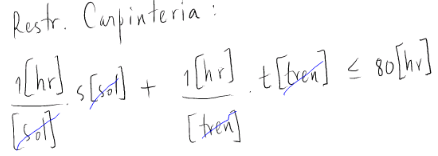 Restr. Carpinteria :
1[hr]/[sol] · s[sol] + 1[hr]/[tren] · t[tren] ≤ 80[hr]